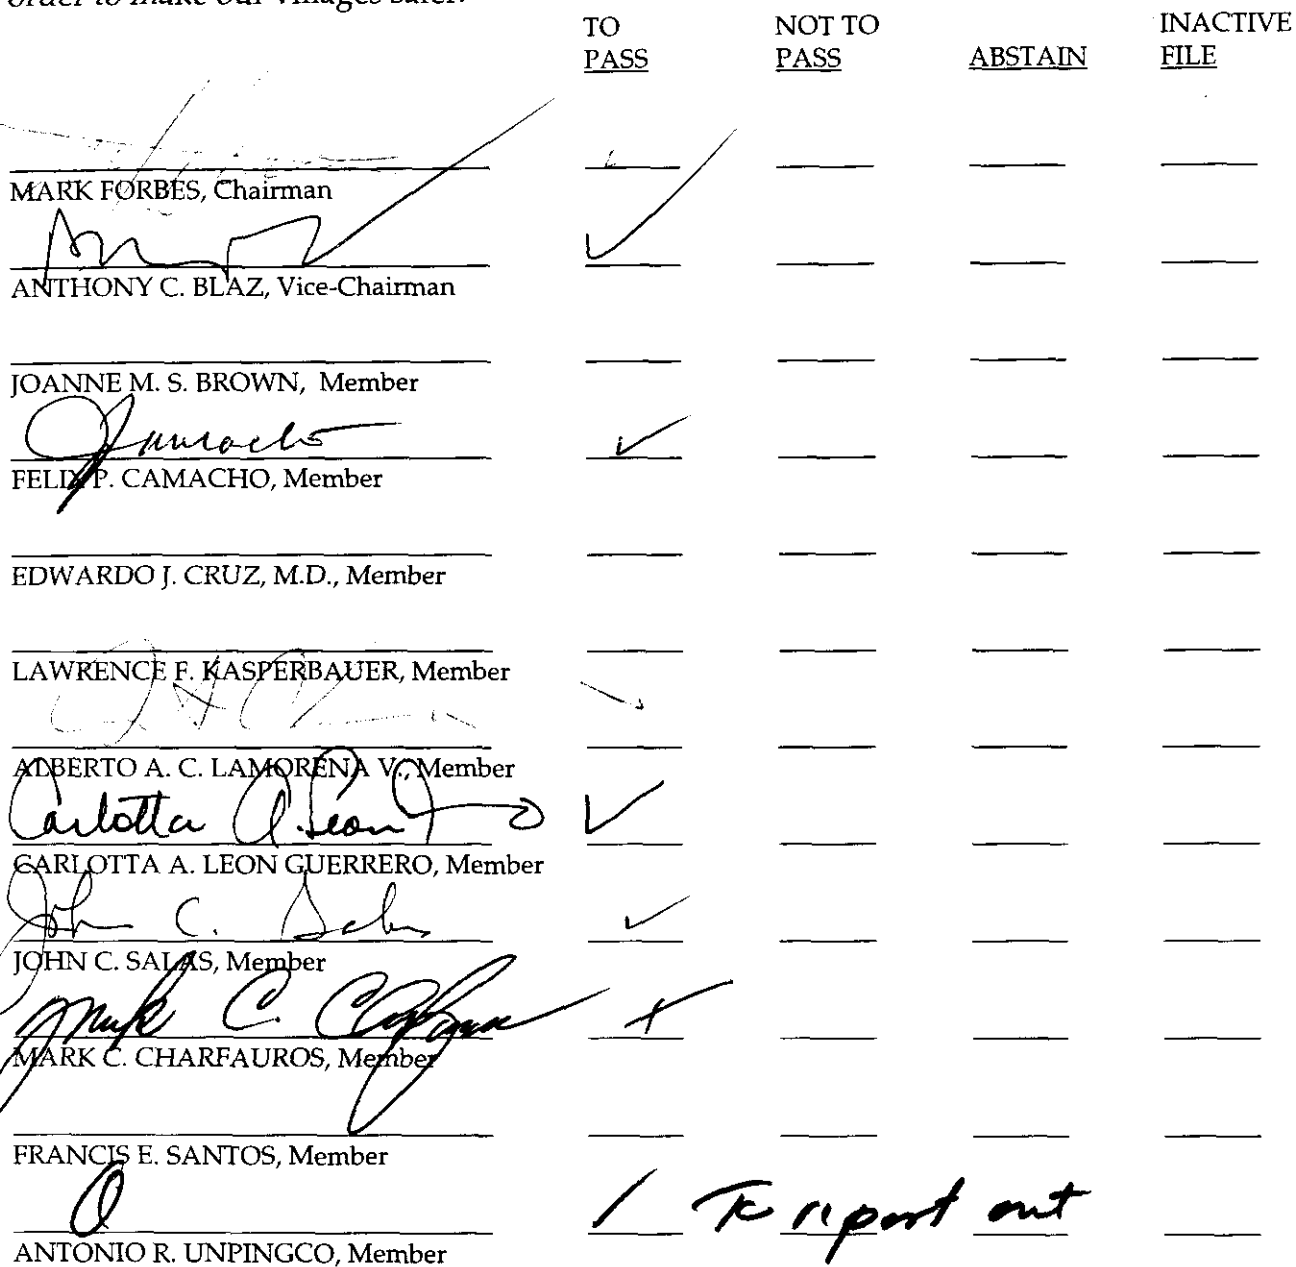 order to make our villages safer.
TO PASS NOT TO PASS ABSTAIN INACTIVE FILE
MARK FORBES, Chairman
ANTHONY C. BLAZ, Vice-Chairman
JOANNE M. S. BROWN, Member
FELIX P. CAMACHO, Member
EDWARDO J. CRUZ, M.D., Member
LAWRENCE F. KASPERBAUER, Member
ALBERTO A. C. LAMORENA V., Member
Carlotta A. Leon
CARLOTTA A. LEON GUERRERO, Member
John C. Salas
JOHN C. SALAS, Member
Mark C.
MARK C. CHARFAUROS, Member
FRANCIS E. SANTOS, Member
To report out
ANTONIO R. UNPINGCO, Member